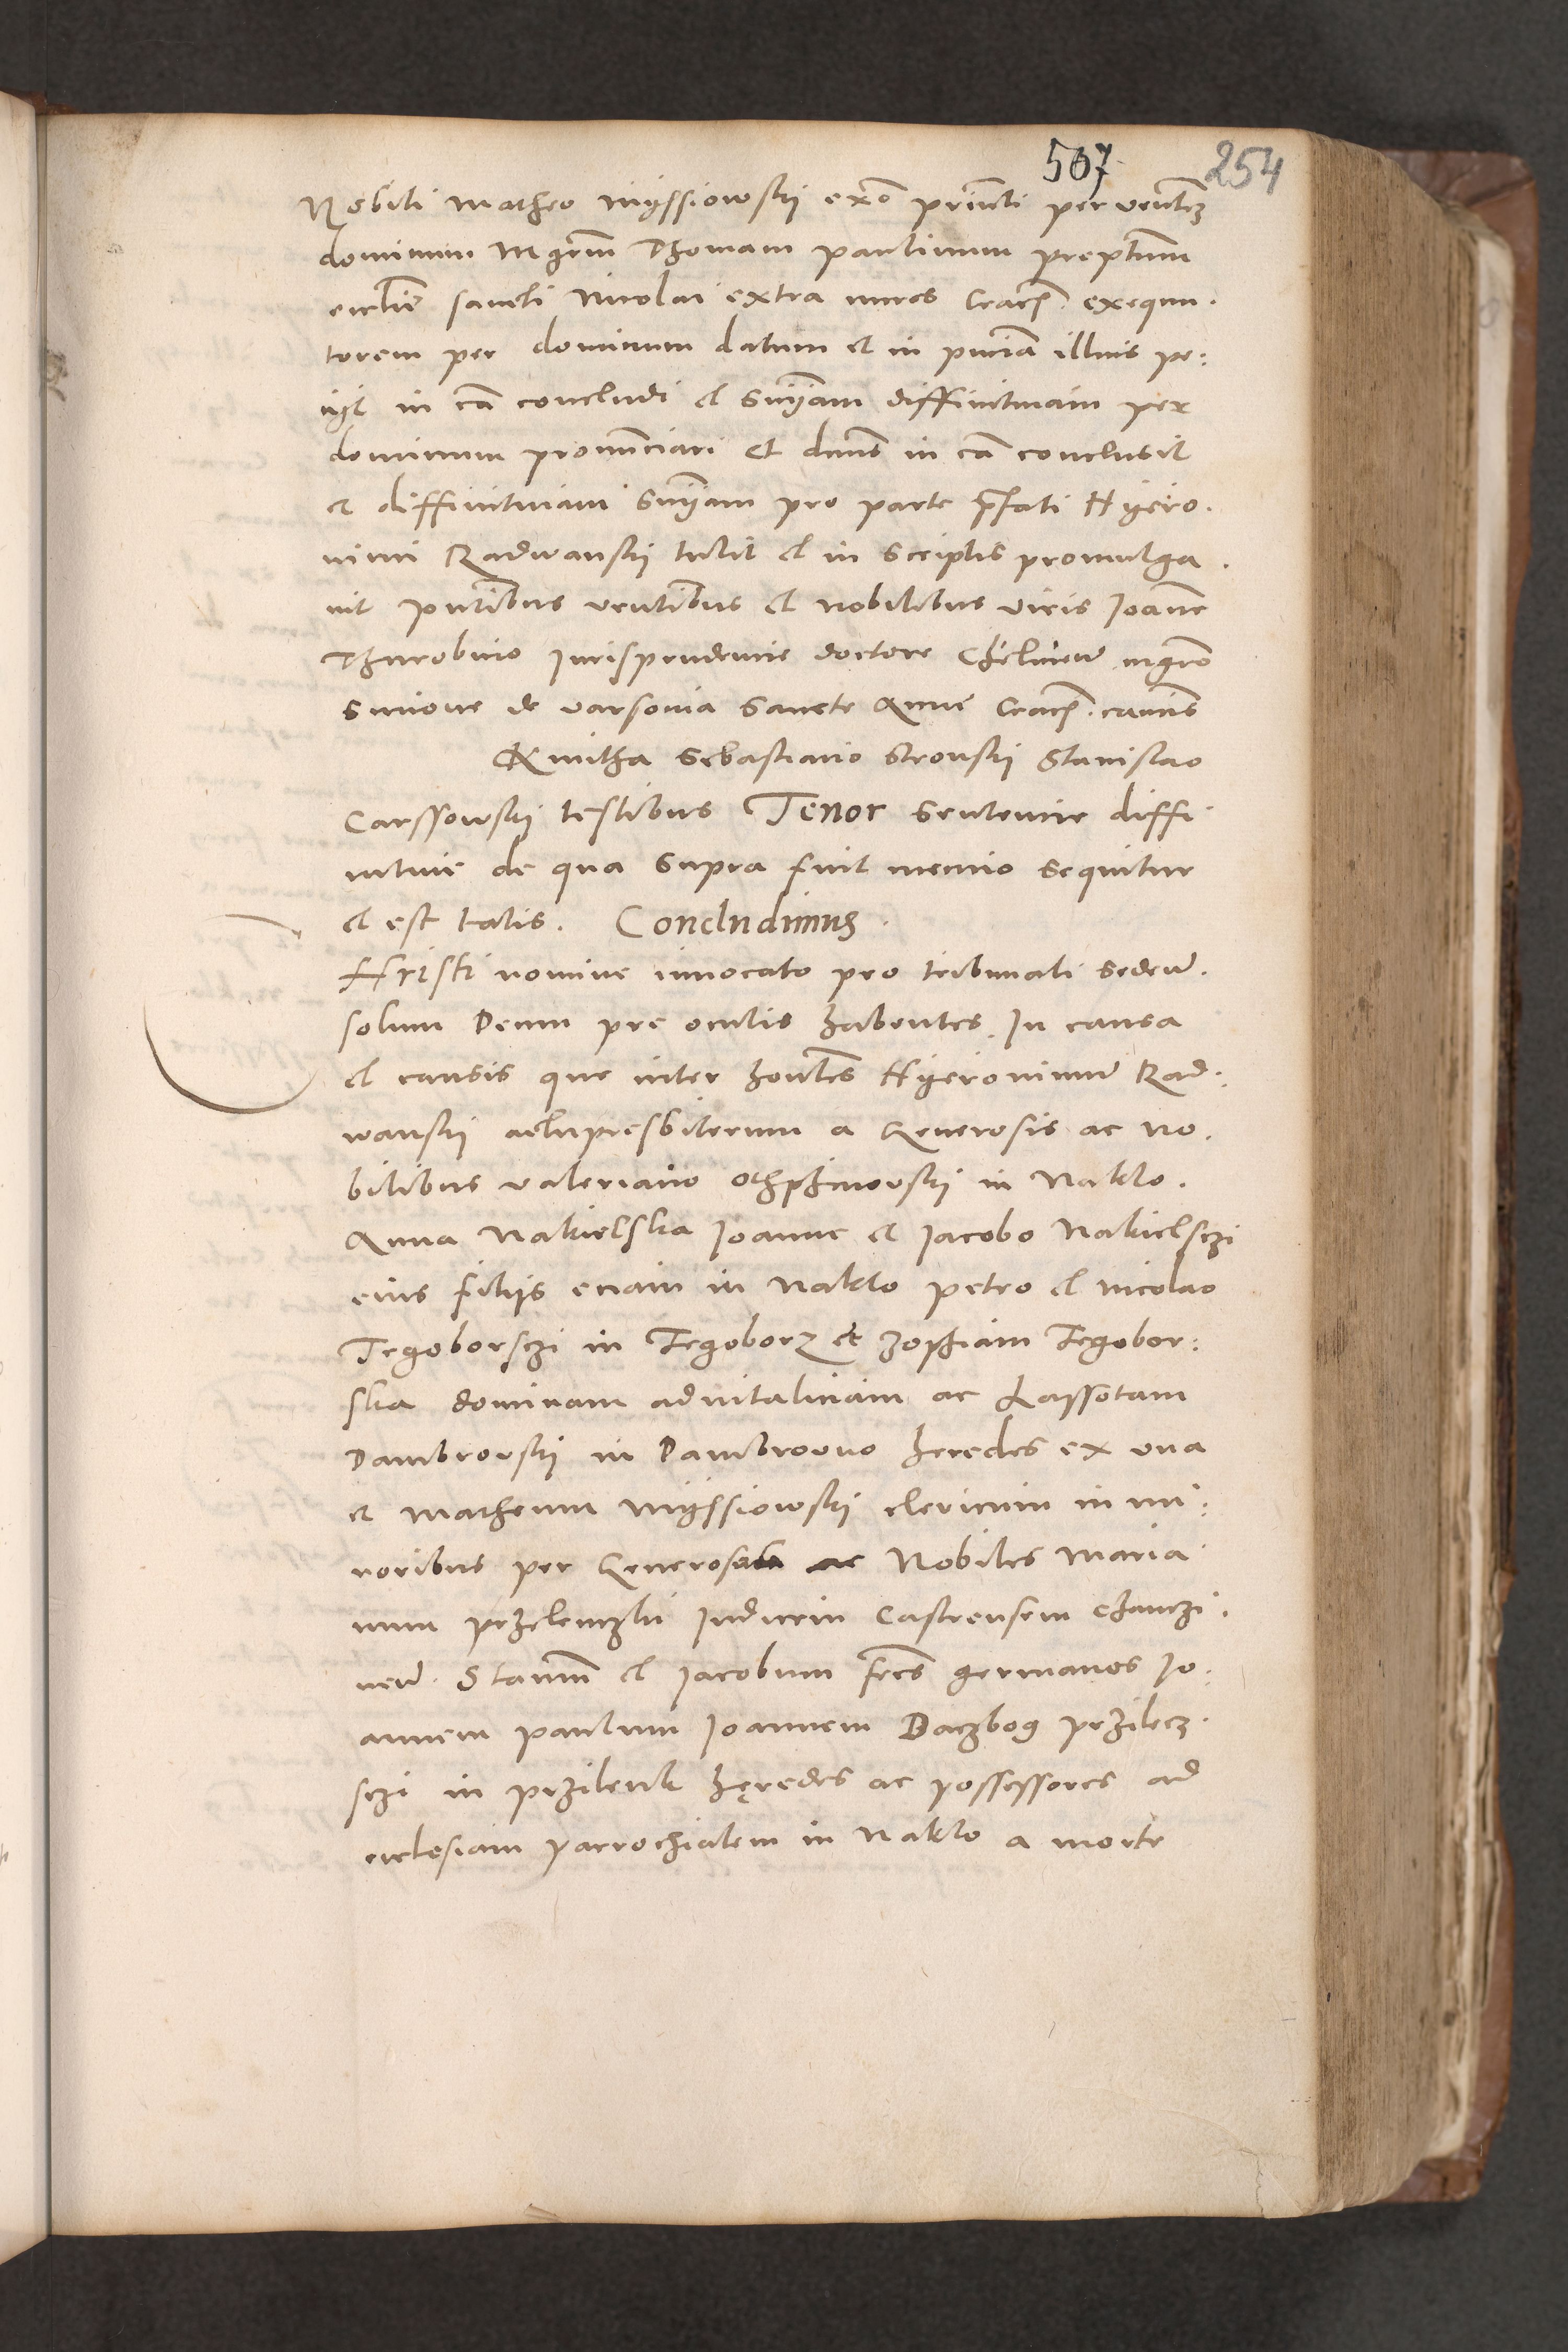 507
254
Nobili Matheo Myssiowskij ex͞o pri͞ncti per ven͞tez
dominum Mgr͞m Thomam paulinum prept͞um
ecclie͞ sancti Nicolai extra muros Crac͞. exequu.
torem per dominum datum et in pn͞cia illius pe:
tijt in ca͞ concludi et snij͞am diffinitivam per
dominum pronunciari Et dn͞us in ca͞ conclusit
et diffinitivam snij͞am pro parte p͞fati Hyero.
nimi Radwanskij tulit et in scriptis promulga.
vit pn͞tibus ven͞tibus et nobilibus viris Joanne
Thurobino Jurisprudencie doctore Chelmen͞ mgr͞o
Simone de varsovia Sancte Anne Crac͞. can͞cis
Kmitha Sebastiano Stronskij Stanislao
Carssowskij testibus Tenor Sentencie diffi
nitive de qua supra fuit mencio sequitur
et est talis. Concludimus.
Hristi nomine invocato pro tribunali seden͞.
solum Deum pre oculis habentes. In causa
et causis que inter hon͞les Hyeronimum͞ Rad:
wanskij actu presbiterum a Generosis ac no.
bilibus valeriano Othphinowskij in Naklo.
Anna Nakielska Joanne et Jacobo Nakielsczi
eius filijs eciam in Naklo petro et nicolao
Tegoborsczi in Tegoborz et zophiam Tegobor:
ska dominam advitaliciam ac Lassotam
Dambrowskij in Dambrowno heredes ex una
et Matheum Myssiowskij clericum in mi:
noribus per Generosum ac Nobiles Maria
num przelenczki Judicem Castrensem Chanczi.
nen͞. Stan͞um et Jacobum fr͞es germanos Jo:
annem paulum Joannem Daczbog przilecz.
sczi in przilenk hęredes ac possessores ad
ecclesiam parrochialem in Naklo a morte